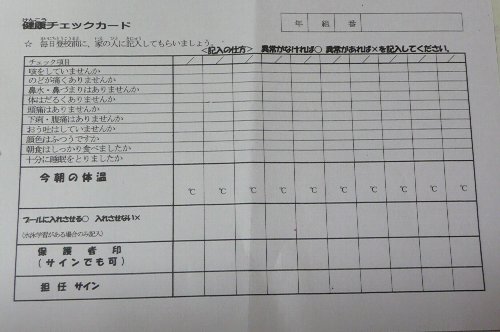 健康チェックカード
年 組 番
☆ 毎日登校前に、家の人に記入してもらいましょう。 <記入の仕方> 異常がなければ○ 異常があれば×を記入してください。
チェック項目 / / / / / / / / / /
咳をしていませんか
のどが痛くありませんか
鼻水・鼻づまりはありませんか
体はだるくありませんか
頭痛はありませんか
下痢・腹痛はありませんか
おう吐はしていませんか
顔色はふつうですか
朝食はしっかり食べましたか
十分に睡眠をとりましたか
今朝の体温 ℃ ℃ ℃ ℃ ℃ ℃ ℃ ℃ ℃ ℃
プールに入れさせる○ 入れさせない×
(水泳学習がある場合のみ記入)
保護者印
(サインでも可)
担任 サイン